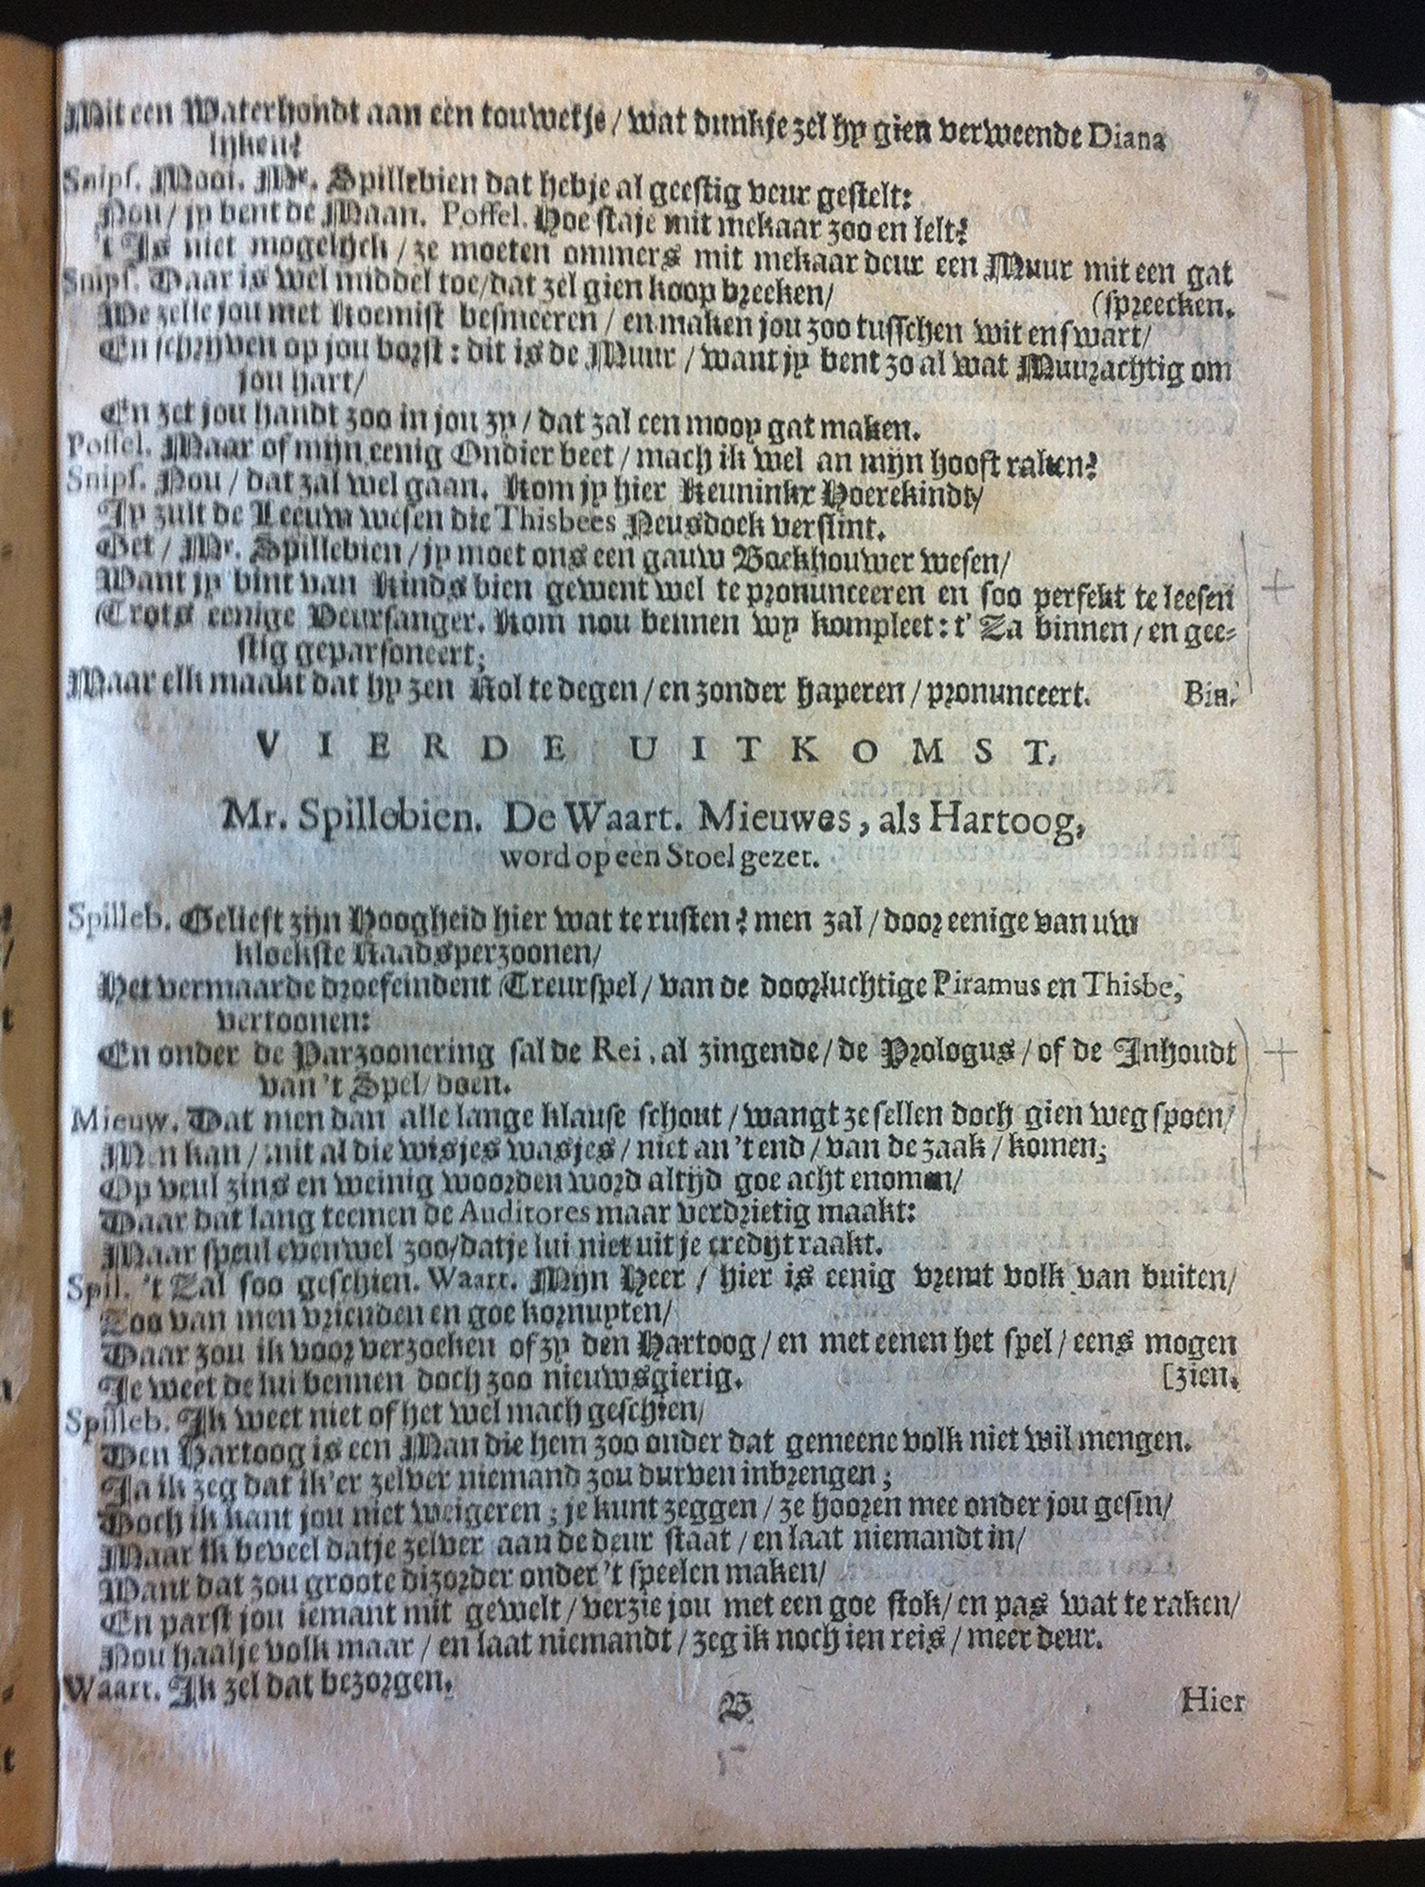 Mit een Waterhondt aan een touwetje / wat dunkje zel hy gien verweende Diana
lijken?
Snips. Mooi. Mr. Spillebien dat hebje al geestig veur gestelt:
Nou / jy bent de Maan. Poffel. Hoe staje mit mekaar zoo en lelt?
't Is niet mogelijck / ze moeten ommers mit mekaar deur een Muur mit een gat
Snips. Daar is wel middel toe / dat zel gien koop breeken / (spreecken.
We zelle jou met koemist besmeeren / en maken jou zoo tusschen wit en swart /
En schrijven op jou borst : dit is de Muur / want jy bent zo al wat Muurachtig om
jou hart /
En zet jou handt zoo in jou zy / dat zal een mooy gat maken.
Poffel. Maar of mijn eenig Ondier beet / mach ik wel an mijn hooft raken?
Snips. Nou / dat zal wel gaan. Kom jy hier Keuninkx Hoerekindt /
Jy zult de Leeuw wesen die Thisbees Neusdoek verslint.
Get / Mr. Spillebien / jy moet ons een gauw Boekhouwer wesen /
Want jy bint van kinds bien gewent wel te pronunceeren en soo perfekt te leesen
Trots eenige Veursanger. Kom nou bennen wy kompleet : t' Za binnen / en gee-
stig geparsoneert;
Maar elk maakt dat hy zen Rol te degen / en zonder haperen / pronunceert. Bin.
VIERDE UITKOMST.
Mr. Spillebien. De Waart. Mieuwes, als Hartoog,
word op een Stoel gezet.
Spilleb. Gelieft zijn Hoogheid hier wat te rusten? men zal / door eenige van uw
kloekste Raadsperzoonen /
Het vermaarde droefeindent Treurspel / van de doorluchtige Piramus en Thisbe,
vertoonen:
En onder de Parzoonering sal de Rei, al zingende / de Prologus / of de Inhoudt
van 't Spel / doen.
Mieuw. Dat men dan alle lange klause schout / wangt ze sellen doch gien weg spoen /
Men kan / mit al die wisjes wasjes / niet an 't end / van de zaak / komen;
Op veul zins en weinig woorden word altijd goe acht enomen /
Waar dat lang teemen de Auditores maar verdrietig maakt:
Maar speul evenwel zoo / datje lui niet uit je credijt raakt.
Spil. 't Zal soo geschien. Waart. Mijn Heer / hier is eenig vremt volk van buiten /
Zoo van men vrienden en goe kornuyten /
Daar zou ik voor verzoeken of zy den Hartoog / en met eenen het spel / eens mogen
Je weet de lui bennen doch zoo nieuwsgierig. [zien.
Spilleb. Ik weet niet of het wel mach geschien /
Den Hartoog is een Man die hem zoo onder dat gemeene volk niet wil mengen.
Ja ik zeg dat ik 'er zelver niemand zou durven inbrengen;
Doch ik kant jou niet weigeren ; je kunt zeggen / ze hooren mee onder jou gesin /
Maar ik beveel datje zelver aan de deur staat / en laat niemandt in /
Want dat zou groote dizorder onder 't speelen maken /
En parst jou iemant mit gewelt / verzie jou met een goe stok / en pas wat te raken /
Nou haalje volk maar / en laat niemandt / zeg ik noch ien reis / meer deur.
Waart. Ik zel dat bezorgen.
B Hier